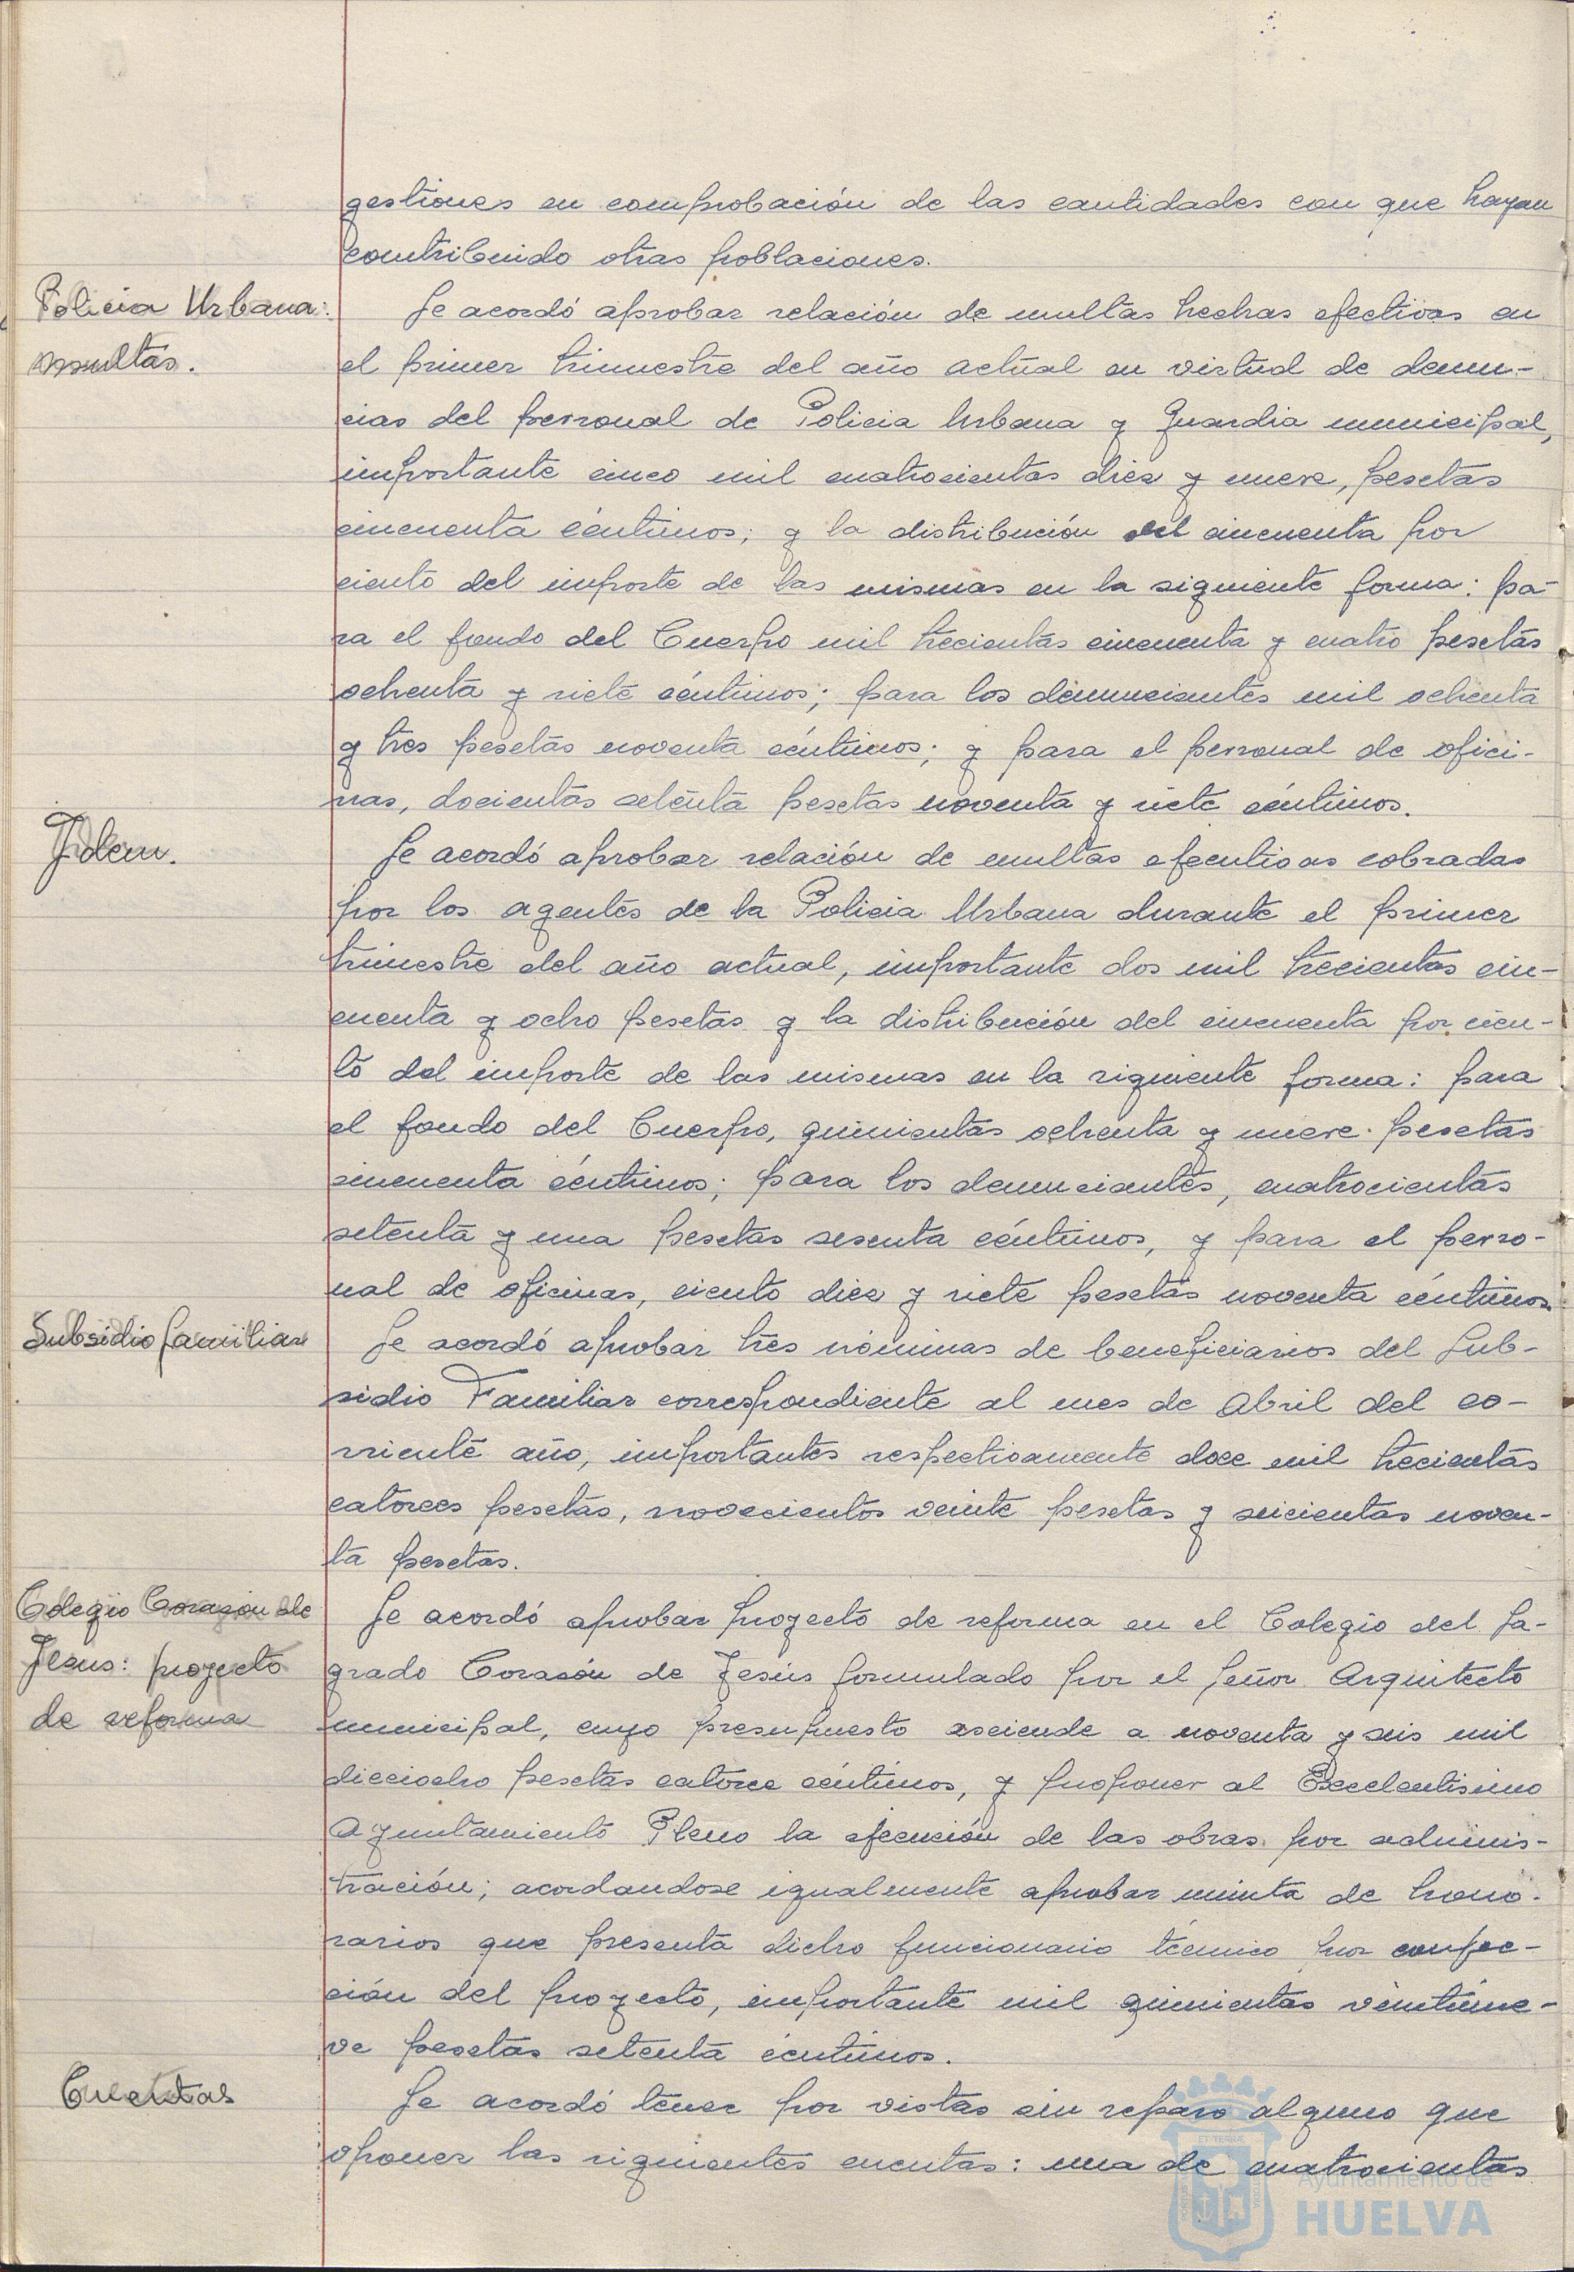 gestiones en comprobación de las cantidades con que hayan
contribuido otras poblaciones.
Policia Urbana:
multas.
Se acordó aprobar relación de multas hechas efectivas en
el primer trimestre del año actual en virtud de denun-
cias del personal de Policia Urbana y Guardia municipal,
importante cinco mil cuatrocientas diez y nueve, pesetas
cincuenta céntimos; y la distribución del cincuenta por
ciento del importe de las mismas en la siguiente forma: pa-
ra el fondo del Cuerpo mil trecientas cincuenta y cuatro pesetas
ochenta y siete céntimos; para los denunciantes mil ochenta
y tres pesetas noventa céntimos; y para el personal de ofici-
nas, docientas setenta pesetas noventa y siete céntimos.
Idem.
Se acordó aprobar relación de multas ejecutivas cobradas
por los agentes de la Policia Urbana durante el primer
trimestre del año actual, importante dos mil trecientas cin-
cuenta y ocho pesetas y la distribución del cincuenta por cien-
to del importe de las mismas en la siguiente forma: para
el fondo del Cuerpo, quinientas ochenta y nueve pesetas
cincuenta céntimos; para los denunciantes, cuatrocientas
setenta y una pesetas sesenta céntimos, y para el perso-
nal de oficinas, ciento diez y siete pesetas noventa céntimos.
Subsidio familiar
Se acordó aprobar tres nóminas de beneficiarios del Sub-
sidio Familiar correspondiente al mes de Abril del co-
rriente año, importantes respectivamente doce mil trecientas
catorces pesetas, novecientos veinte pesetas y seicientas noven-
ta pesetas.
Colegio Corazón de
Jesus: proyecto
de reforma
Se acordó aprobar proyecto de reforma en el Colegio del Sa-
grado Corazón de Jesús formulado por el Señor Arquitecto
municipal, cuyo presupuesto asciende a noventa y seis mil
dieciocho pesetas catorce céntimos, y proponer al Excelentisimo
Ayuntamiento Pleno la ejecución de las obras por adminis-
tración; acordandose igualmente aprobar minuta de hono-
rarios que presenta dicho funcionario técnico por confec-
ción del proyecto, importante mil quinientas veintinue-
ve pesetas setenta céntimos.
Cuentas
Se acordó tener por vistas sin reparo alguno que
oponer las siguientes cuentas: una de cuatrocientas
Ayuntamiento de
HUELVA